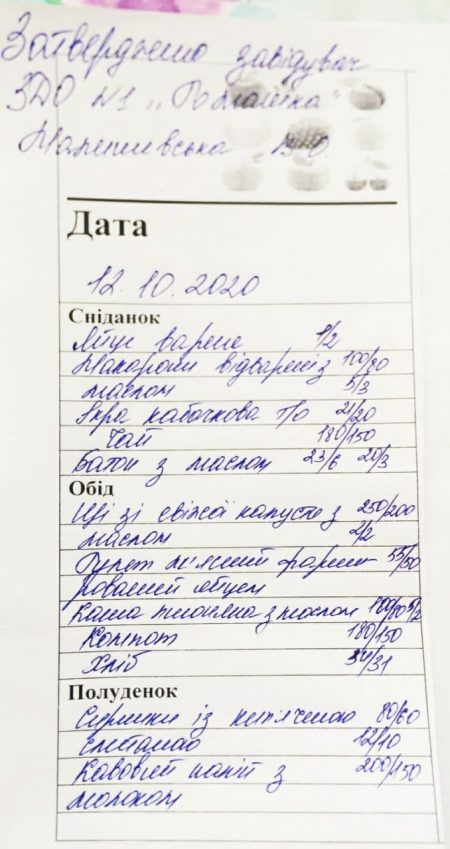 Затверджено завідувач
ЗДО №1 "Ромашка"
Дата
12.10.2020
Сніданок
Яйце варене 1/2
Макарони відварені з 100/80
маслом 5/3
Ікра кабачкова п/о 21/20
Чай 180/150
Батон з маслом 23/6 20/3
Обід
Щі зі свіжої капусти з 250/200
маслом 2/2
Рулет м'ясний фарши- 55/50
рований яйцем
Каша пшоняна з маслом 100/80 5/2
Компот 180/150
Хліб 34/31
Полуденок
Сирники із кип'яченою 80/60
сметаною 12/10
Кавовий напій з 200/150
молоком